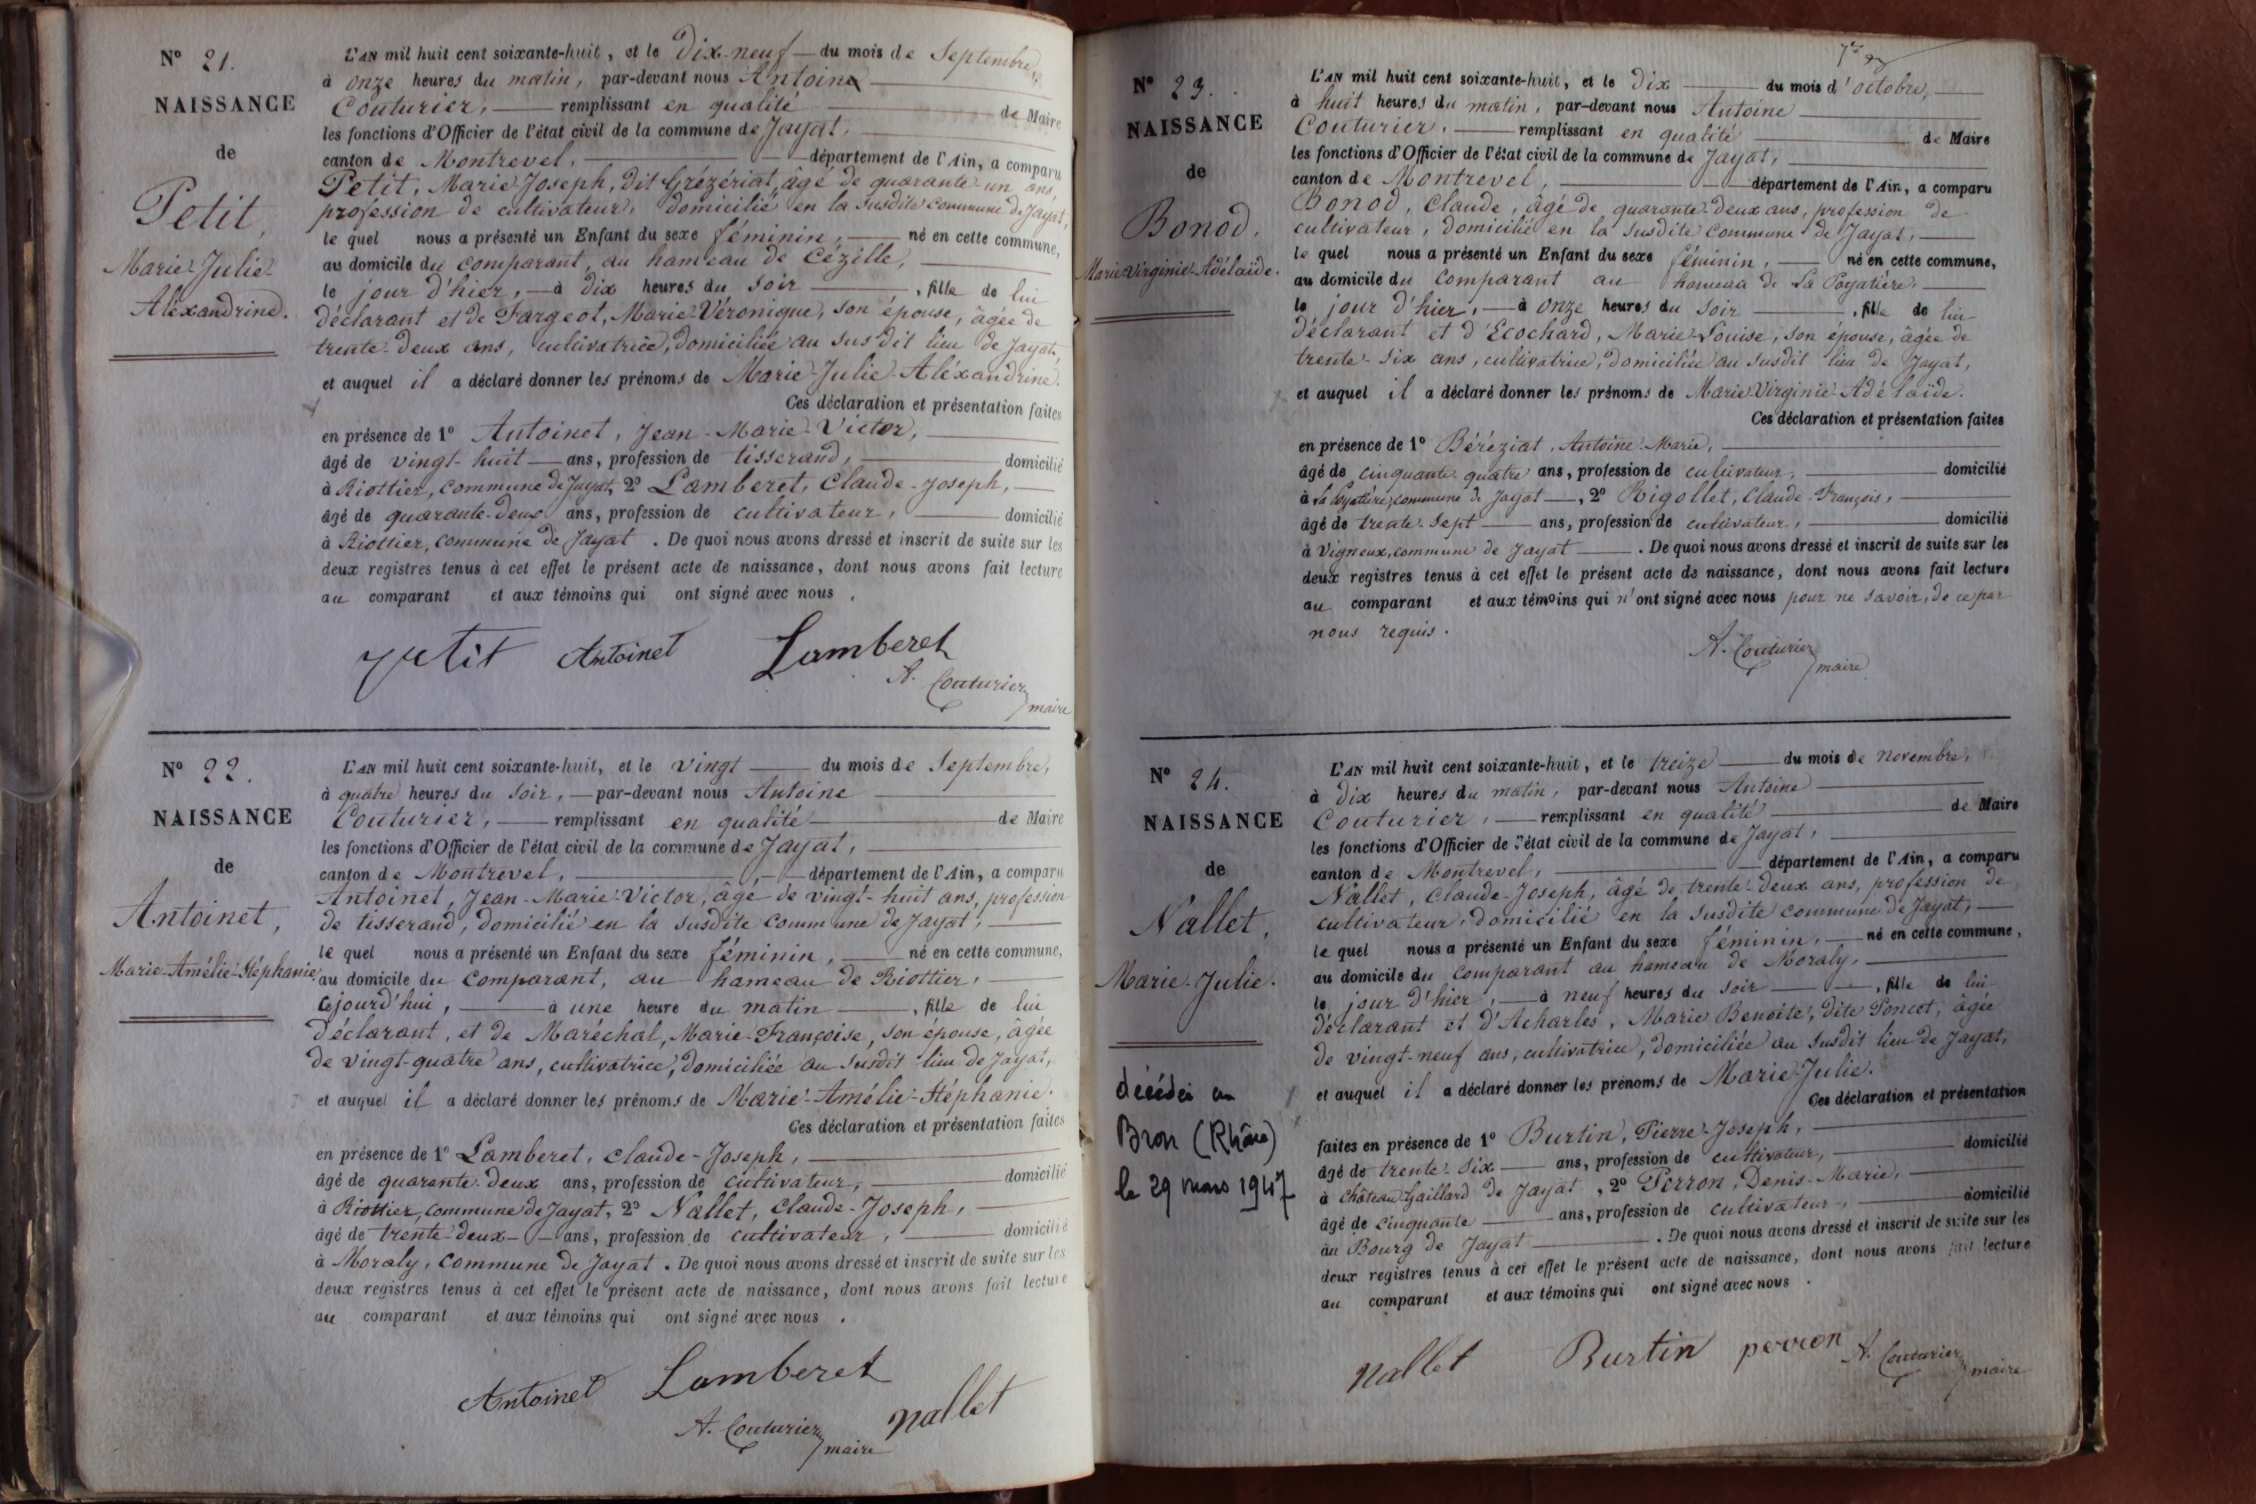 N° 21.
NAISSANCE
de
Petit,
Marie-Julie-
Alexandrine.
L'AN mil huit cent soixante-huit, et le Dix-neuf du mois de Septembre,
à onze heures du matin, par-devant nous Antoine
Couturier, remplissant en qualité de Maire
les fonctions d'Officier de l'état civil de la commune de Jayat,
canton de Montrevel, département de l'Ain, a comparu
Petit, Marie-Joseph, dit Grézériat, âgé de quarante-un ans,
profession de cultivateur, domicilié en la susdite commune de Jayat,
le quel nous a présenté un Enfant du sexe féminin, né en cette commune,
au domicile du comparant, au hameau de Cézille,
le jour d'hier, à dix heures du soir, fille de lui
déclarant et de Fargeot, Marie-Véronique, son épouse, âgée de
trente-deux ans, cultivatrice, domiciliée au susdit lieu de Jayat,
et auquel il a déclaré donner les prénoms de Marie-Julie-Aléxandrine.
Ces déclaration et présentation faites
en présence de 1° Antoinet, Jean-Marie-Victor,
âgé de vingt-huit ans, profession de tisserand, domicilié
à Riottier, commune de Jayat, 2° Lamberet, Claude-Joseph,
âgé de quarante-deux ans, profession de cultivateur, domicilié
à Riottier, commune de Jayat. De quoi nous avons dressé et inscrit de suite sur les
deux registres tenus à cet effet le présent acte de naissance, dont nous avons fait lecture
au comparant et aux témoins qui ont signé avec nous.
Petit Antoinet Lamberet
A. Couturier
maire
N° 22.
NAISSANCE
de
Antoinet,
Marie-Amélie-Stéphanie
L'AN mil huit cent soixante-huit, et le vingt du mois de Septembre,
à quatre heures du soir, par-devant nous Antoine
Couturier, remplissant en qualité de Maire
les fonctions d'Officier de l'état civil de la commune de Jayat,
canton de Montrevel, département de l'Ain, a comparu
Antoinet, Jean-Marie-Victor, âgé de vingt-huit ans, profession
de tisserand, domicilié en la susdite commune de Jayat,
le quel nous a présenté un Enfant du sexe féminin, né en cette commune,
au domicile du comparant, au hameau de Riottier,
cejourd'hui, à une heure du matin, fille de lui
déclarant, et de Maréchal, Marie-Françoise, son épouse, âgée
de vingt-quatre ans, cultivatrice, domiciliée au susdit lieu de Jayat,
et auquel il a déclaré donner les prénoms de Marie-Amélie-Stéphanie.
Ces déclaration et présentation faites
en présence de 1° Lamberet, Claude-Joseph,
âgé de quarante-deux ans, profession de cultivateur, domicilié
à Riottier, commune de Jayat, 2° Nallet, Claude-Joseph,
âgé de trente-deux ans, profession de cultivateur, domicilié
à Moraly, commune de Jayat. De quoi nous avons dressé et inscrit de suite sur les
deux registres tenus à cet effet le présent acte de naissance, dont nous avons fait lecture
au comparant et aux témoins qui ont signé avec nous.
Antoinet Lamberet
A. Couturier Nallet
maire
N° 23.
NAISSANCE
de
Bonod,
Marie-Virginie-Adélaïde.
L'AN mil huit cent soixante-huit, et le dix du mois d'octobre,
à huit heures du matin, par-devant nous Antoine
Couturier, remplissant en qualité de Maire
les fonctions d'Officier de l'état civil de la commune de Jayat,
canton de Montrevel, département de l'Ain, a comparu
Bonod, Claude, âgé de quarante-deux ans, profession de
cultivateur, domicilié en la susdite commune de Jayat,
le quel nous a présenté un Enfant du sexe féminin, né en cette commune,
au domicile du comparant au hameau de La Poyatière,
le jour d'hier, à onze heures du soir, fille de lui
déclarant et d'Ecochard, Marie-Louise, son épouse, âgée de
trente-six ans, cultivatrice, domiciliée au susdit lieu de Jayat,
et auquel il a déclaré donner les prénoms de Marie-Virginie-Adélaïde.
Ces déclaration et présentation faites
en présence de 1° Béréziat, Antoine-Marie,
âgé de cinquante-quatre ans, profession de cultivateur, domicilié
à La Poyatière, commune de Jayat, 2° Rigollet, Claude-François,
âgé de trente-sept ans, profession de cultivateur, domicilié
à Vigneux, commune de Jayat. De quoi nous avons dressé et inscrit de suite sur les
deux registres tenus à cet effet le présent acte de naissance, dont nous avons fait lecture
au comparant et aux témoins qui n'ont signé avec nous pour ne savoir, de ce par
nous requis.
A. Couturier
maire
N° 24.
NAISSANCE
de
Nallet,
Marie-Julie.
décédée en
Bron (Rhône)
le 29 mars 1947
L'AN mil huit cent soixante-huit, et le treize du mois de novembre,
à dix heures du matin, par-devant nous Antoine
Couturier, remplissant en qualité de Maire
les fonctions d'Officier de l'état civil de la commune de Jayat,
canton de Montrevel, département de l'Ain, a comparu
Nallet, Claude-Joseph, âgé de trente-deux ans, profession de
cultivateur, domicilié en la susdite commune de Jayat,
le quel nous a présenté un Enfant du sexe féminin, né en cette commune,
au domicile du comparant au hameau de Moraly,
le jour d'hier, à neuf heures du soir, fille de lui
déclarant et d'Acharles, Marie Benoîte, dite Poncet, âgée
de vingt-neuf ans, cultivatrice, domiciliée au susdit lieu de Jayat,
et auquel il a déclaré donner les prénoms de Marie-Julie.
Ces déclaration et présentation
faites en présence de 1° Burtin, Pierre-Joseph,
âgé de trente-six ans, profession de cultivateur, domicilié
à Château-Gaillard de Jayat, 2° Perron, Denis-Marie,
âgé de cinquante ans, profession de cultivateur, domicilié
au Bourg de Jayat. De quoi nous avons dressé et inscrit de suite sur les
deux registres tenus à cet effet le présent acte de naissance, dont nous avons fait lecture
au comparant et aux témoins qui ont signé avec nous.
Nallet Burtin perron A. Couturier
maire